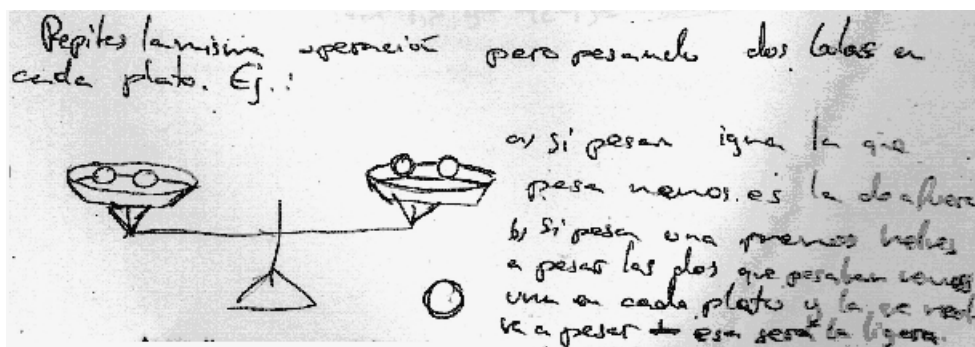 Repites la misma operación pero pesando dos bolas en
cada plato. Ej.:
a) Si pesan igual la que
pesa menos es la de afuera
b) Si pesa una menos
a pesar las dos que pesaban menos
una en cada plato y la que
a pesar esa será la ligera.